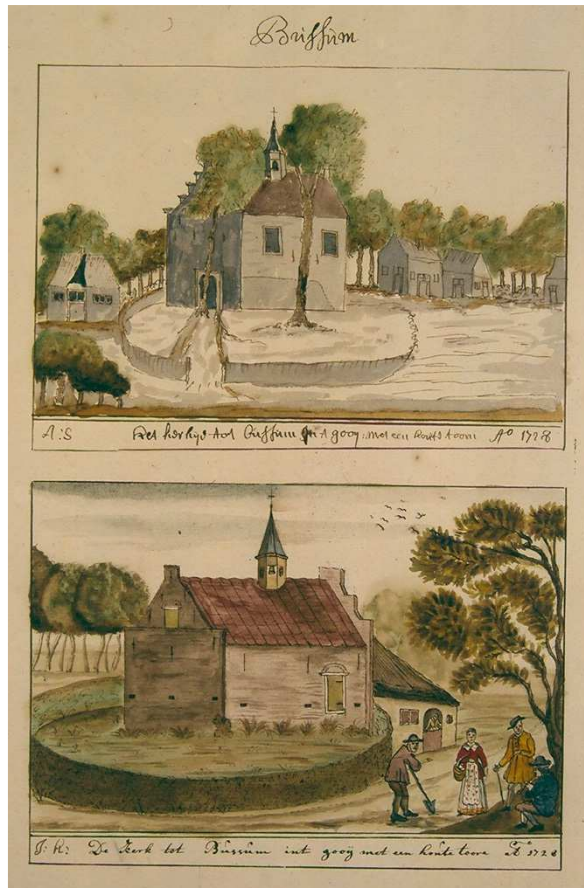 Bussum
A:S Het kerkje tot Bussum in't gooij met een houte toorn Aº 1728
J: h: De Kerk tot Bussum int gooij met een houte toore Aº 1728